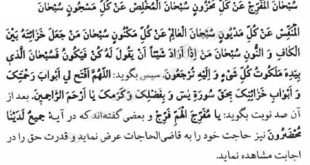 سُبْحَانَ الْمُفَرِّجِ عَنْ كُلِّ مَحْزُونٍ سُبْحَانَ الْمُخَلِّصِ عَنْ كُلِّ مَسْجُونٍ سُبْحَانَ
الْمُنَفِّسِ عَنْ كُلِّ مَدْيُونٍ سُبْحَانَ الْعَالِمِ عَنْ كُلِّ مَكْنُونٍ سُبْحَانَ مَنْ جَعَلَ خَزَائِنَهُ بَيْنَ
الْكَافِ وَ النُّونِ سُبْحَانَ مَنْ إِذَا أَرَادَ شَيْئاً أَنْ يَقُولَ لَهُ كُنْ فَيَكُونُ فَسُبْحَانَ الَّذِي
بِيَدِهِ مَلَكُوتُ كُلِّ شَيْءٍ وَ إِلَيْهِ تُرْجَعُونَ. سپس بگوید: اَللّٰهُمَّ افْتَحْ لِي أَبْوَابَ رَحْمَتِكَ
وَ أَبْوَابَ خَزَائِنِكَ بِحَقِّ سُورَةِ يٰس وَ بِفَضْلِكَ وَ كَرَمِكَ يَا أَرْحَمَ الرَّاحِمِينَ. بعد از
آن صد نوبت بگوید: يَا مُفَرِّجَ الْهَمِّ فَرِّجْ و بعضی گفته‌اند که در آیه جَمِيعٌ لَدَيْنَا
مُحْضَرُونَ نیز حاجت خود را به قاضی‌الحاجات عرض نماید و قدرت حق را در
اجابت مشاهده نماید.